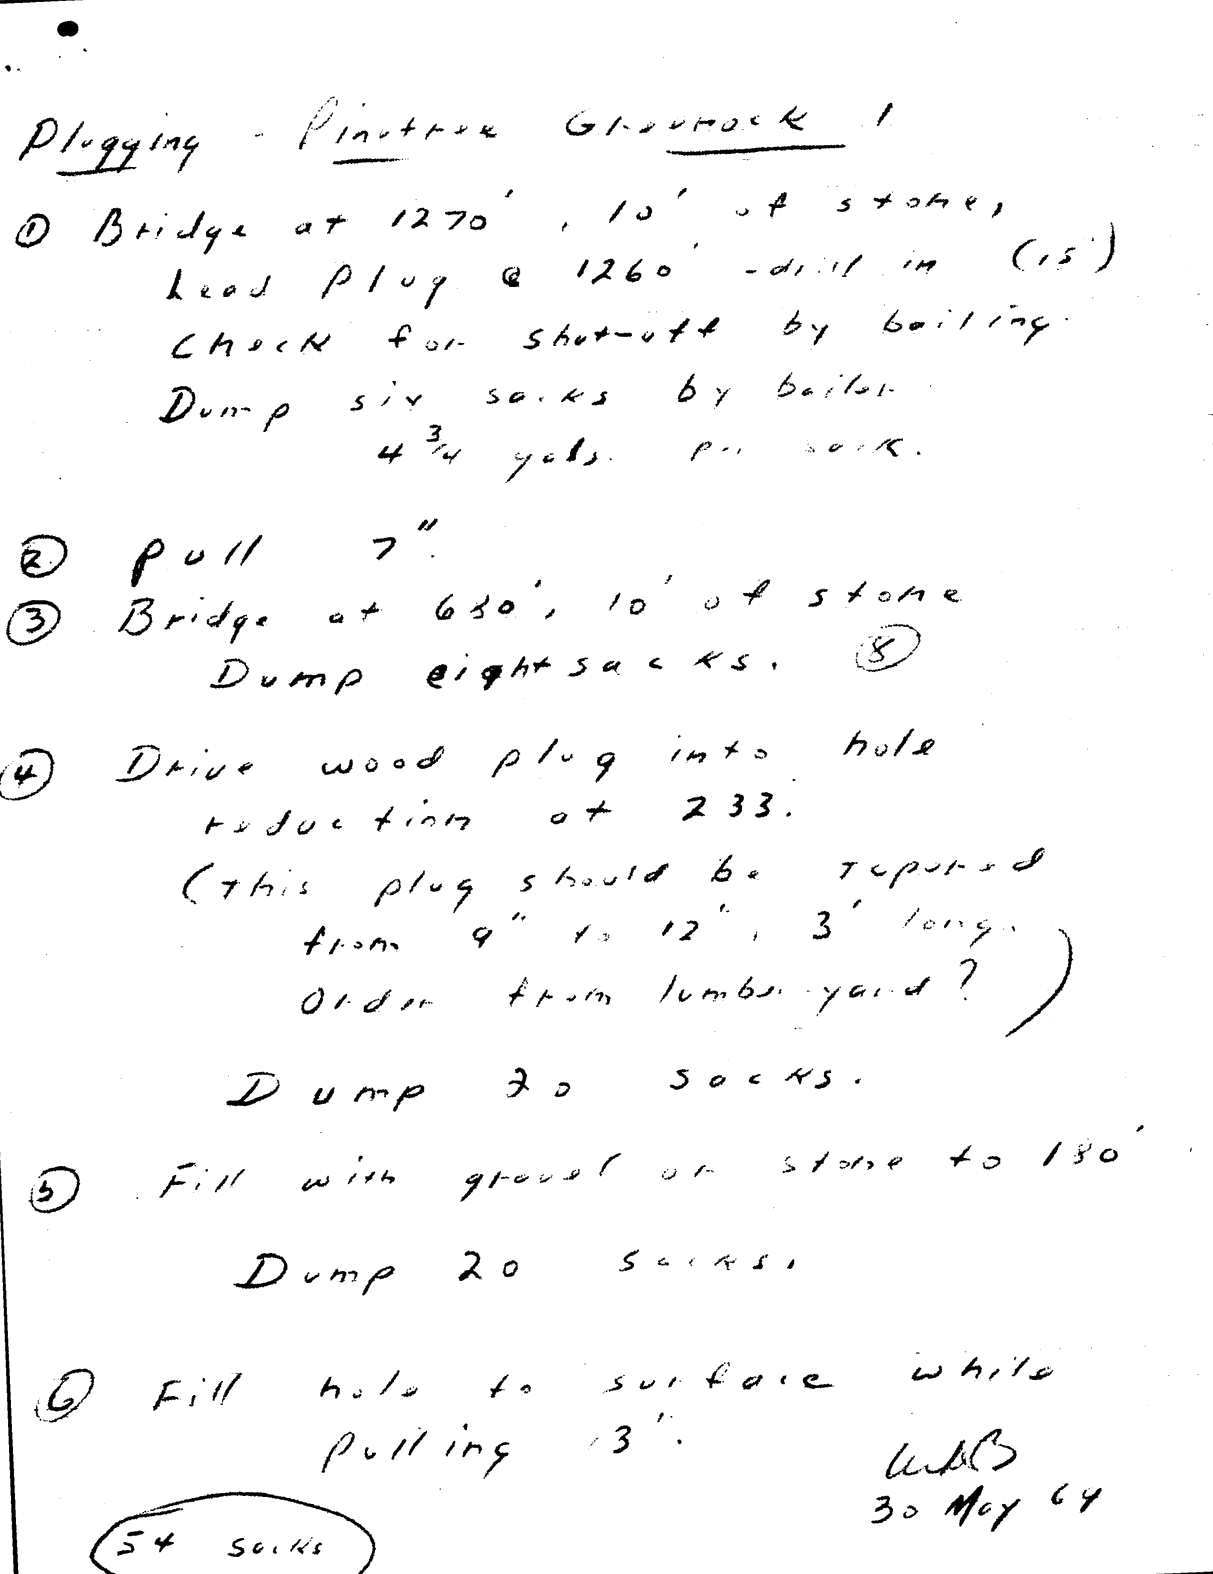 Plugging - Pinetree Greenock 1
① Bridge at 1270', 10' of stone,
Lead Plug @ 1260' - drill in (15')
Check for shut-off by bailing.
Dump six sacks by bailer
4 3/4 gals. per sack.
② Pull 7".
③ Bridge at 630', 10' of stone
Dump eight sacks. ⑧
④ Drive wood plug into hole
reduction at 233.
(This plug should be tapered
from 9" to 12", 3' long.
Order from lumber yard?)
Dump 20 sacks.
⑤ Fill with gravel or stone to 180'
Dump 20 sacks.
⑥ Fill hole to surface while
pulling 13".
30 May 64
54 sacks